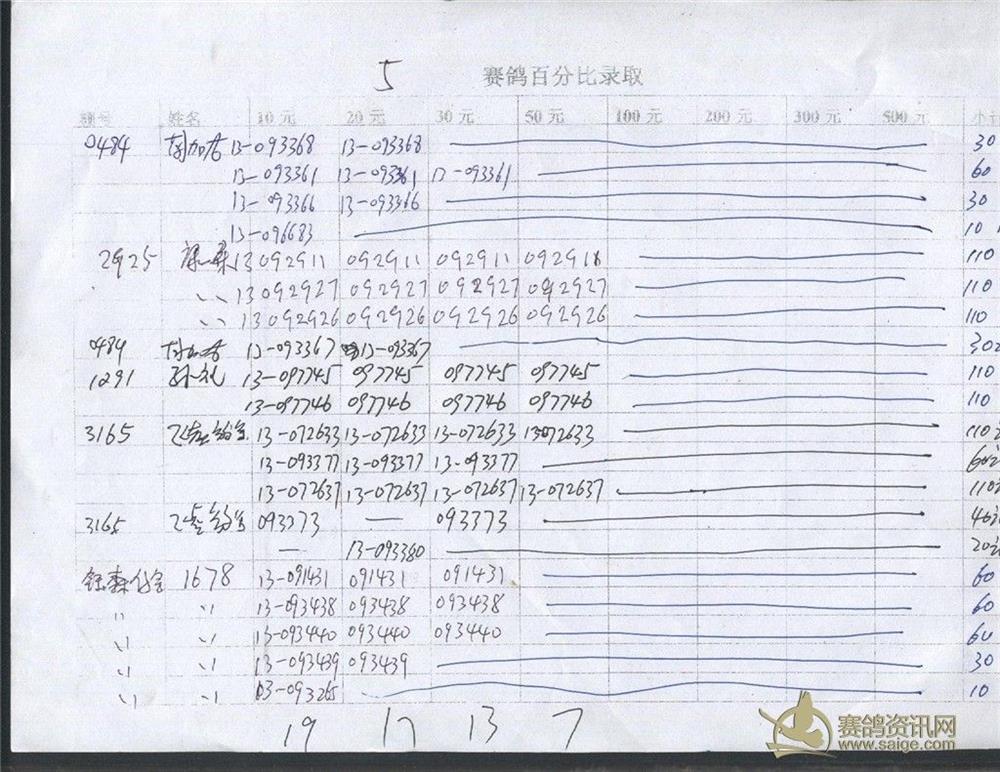 5 赛鸽百分比录取
棚号 姓名 10元 20元 30元 50元 100元 200元 300元 500元 小计
0484 13-093368 13-093368 30
13-093361 13-093361 13-093361 60
13-093366 13-093366 30
13-096683 10
2925 13092911 092911 092911 092911 110
〃 13092927 092927 092927 092927 110
〃 13092926 092926 092926 092926 110
0484 13-093367 13-093367 30
1291 孙礼 13-097745 097745 097745 097745 110
13-097746 097746 097746 097746 110
3165 13-072633 13-072633 13-072633 13-072633 110
13-093377 13-093377 13-093377 60
13-072637 13-072637 13-072637 13-072637 110
3165 093373 — 093373
— 13-093380 20
1678 13-091431 091431 091431 60
〃 〃 13-093438 093438 093438 60
〃 〃 13-093440 093440 093440 60
〃 〃 13-093439 093439 30
〃 〃 03-093265 10
19 17 13 7
赛鸽资讯网
www.saige.com